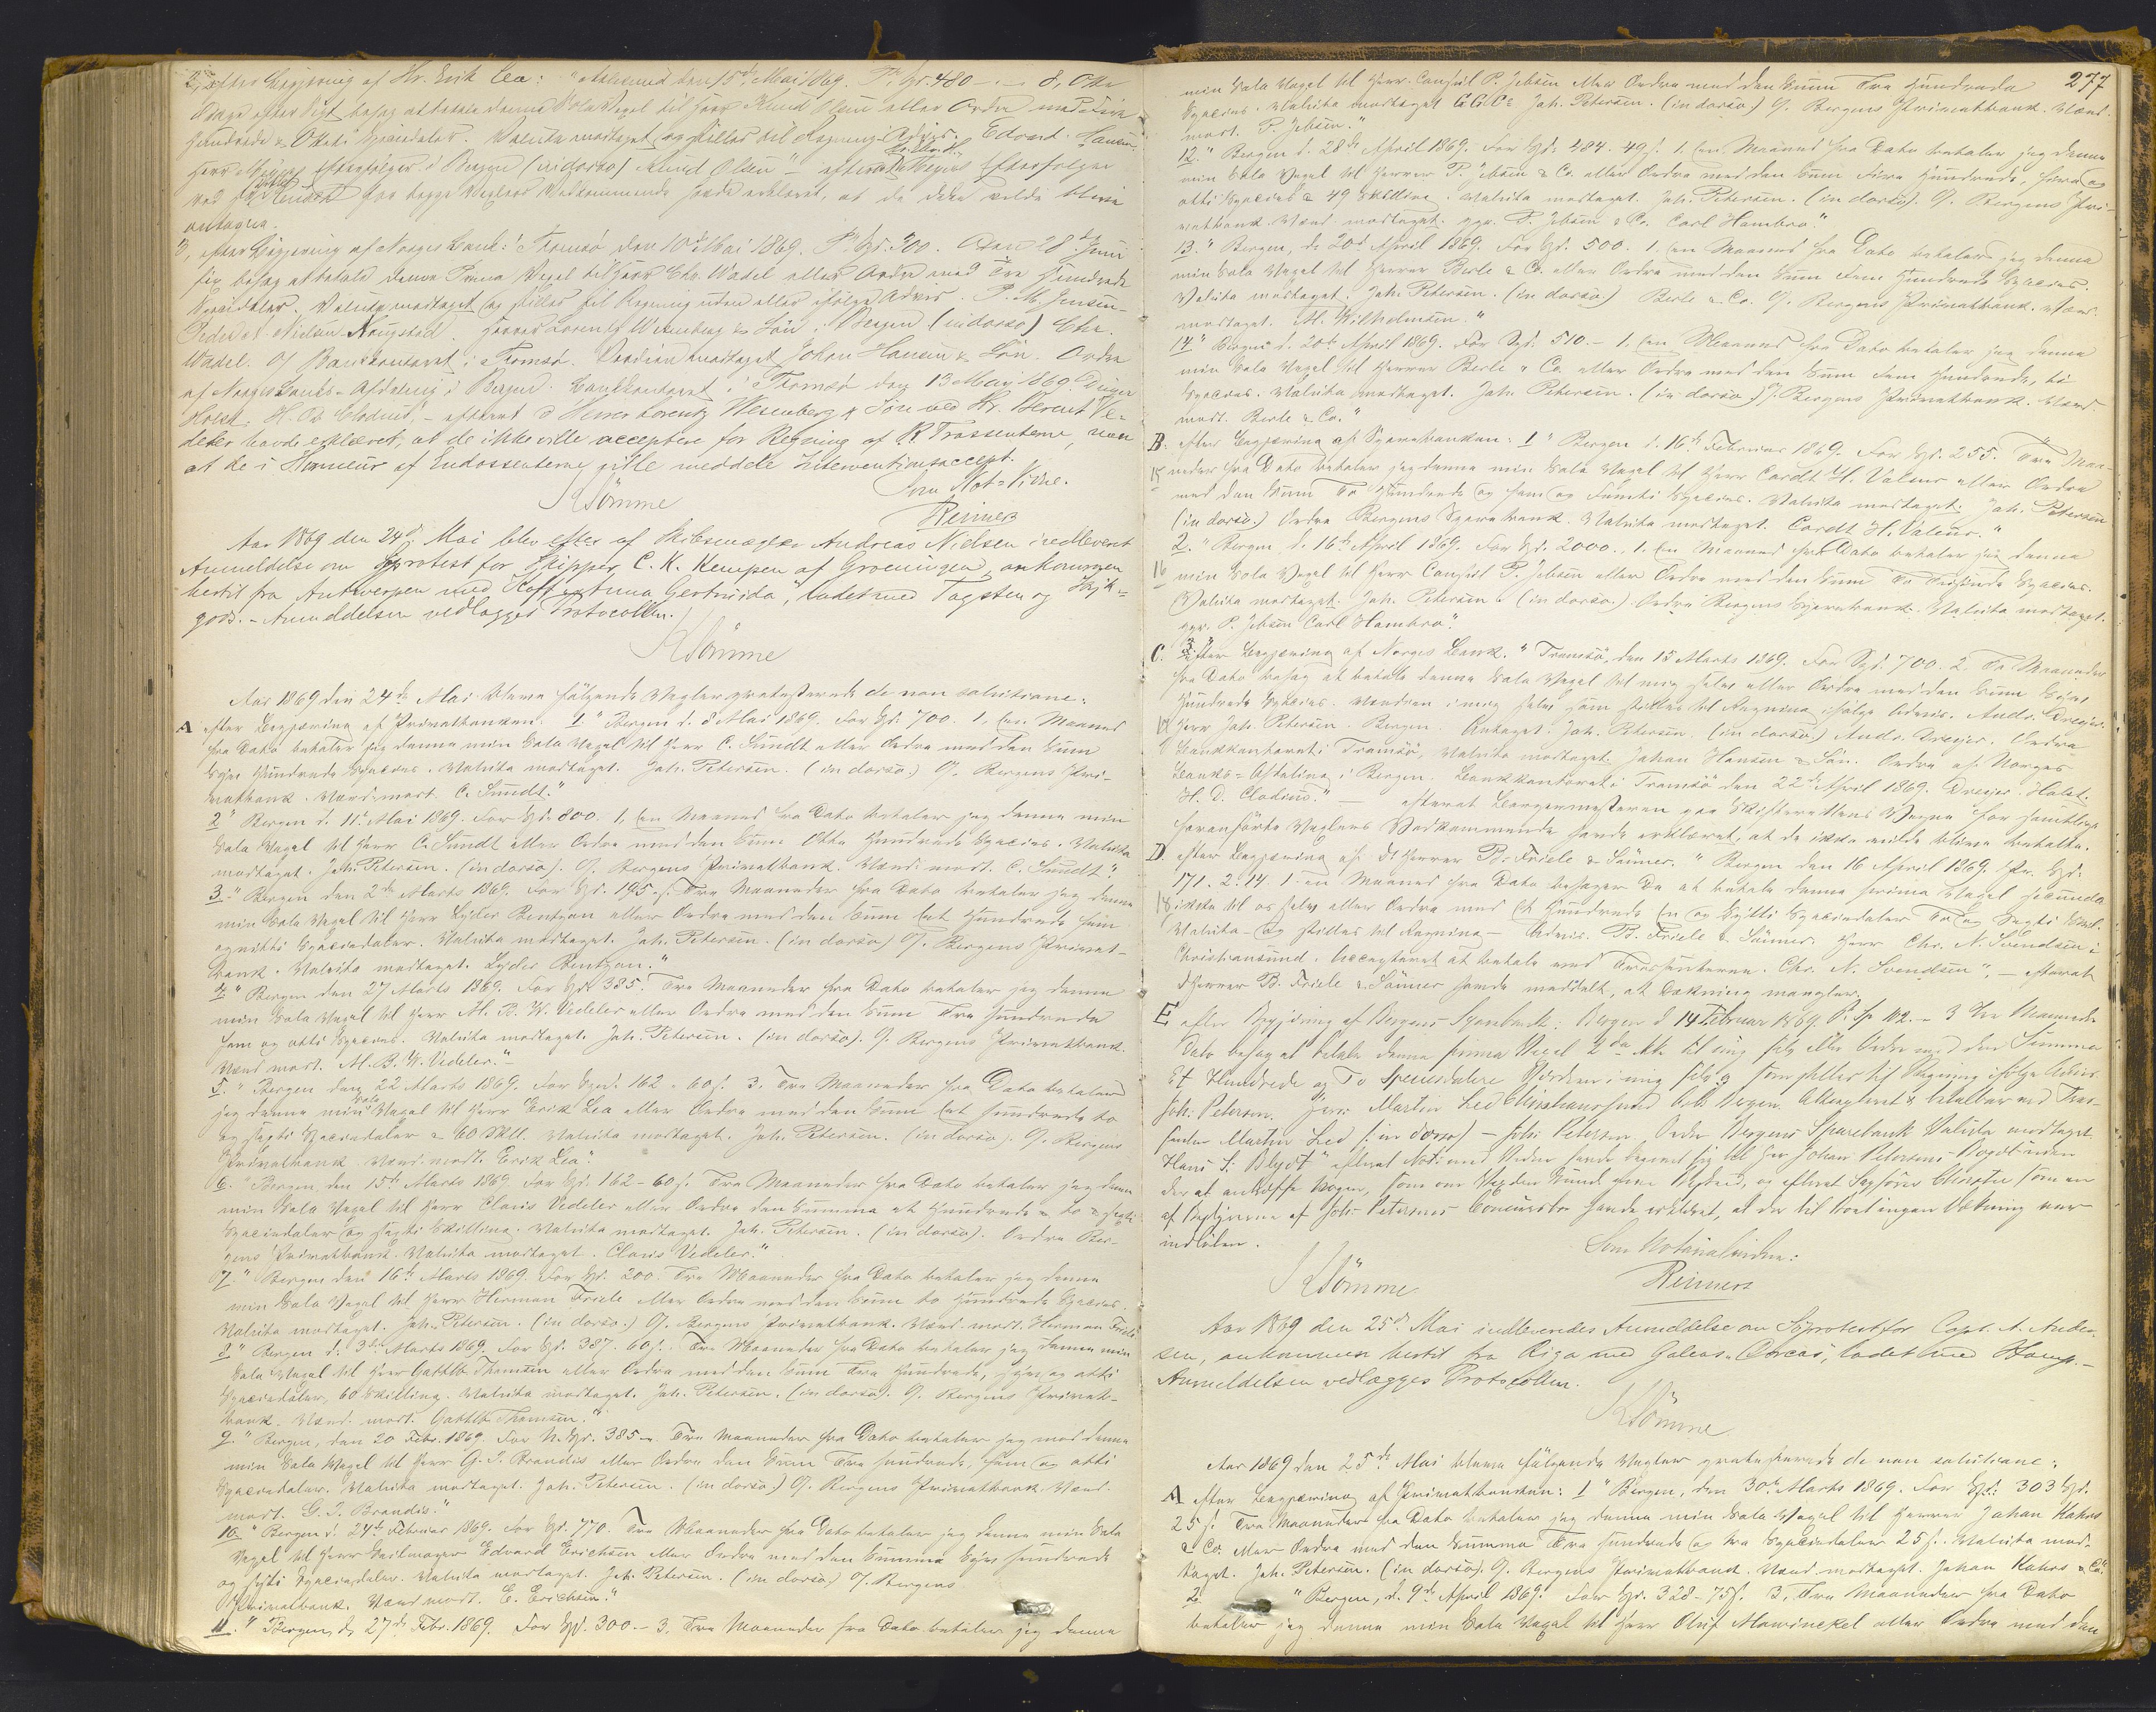 2, efter Begjæring af Hr. Erik Lea: " Aalesund den 15de Mai 1869. Pr Spd. 480 — 8, Otte
Dage efter Sigt behag at betale denne Sola Vexel til Herr Knud Olsen eller Ordre med Fire
Hundrede & Otteti Speciedaler. Valuta modtaget og stilles til Regning Advis. Edvard Hansen
Herr Efterfølger i Bergen (in dorso) Knud Olsen" – efterat Efterfølger
ved for begge Vexlers Vedkommende havde erklæret, at de ikke vilde blive
antagen.
3, efter Begjæring af Norges Bank: "Tromsø den 10de Mai 1869. Pr Spd. 300. Den 28de Juni
behag at betale denne Prima Vexel til Herr Chr. Wadel eller Ordre med Tre Hundrede
Speciedaler. Valuta modtaget og stilles til Regning uden eller ifølge Advis. P. M. Jensen
Peder Nielsen Haugstad. Herrer Lorentz Wesenberg & Søn. Bergen (in dorso) Chr.
Wadel. O/ Bankkontoret i Tromsø. Værdien modtaget Johan Hansen & Søn. Ordre
af Norges Banks Afdeling i Bergen. Bankkontoret i Tromsø den 13 Mai 1869. Dreyer
Holst. H. D. Clodius", – efterat d'Herrer Lorentz Wesenberg & Søn ved Hr. Berent Ve-
deler havde erklæret, at de ikke ville acceptere for Regning af Trassenterne, men
at de i Honneur af Endossenterne ville meddele Interventionsaccept.
KSömme
Som Not: Vidne.
Reimers
Aar 1869 den 24de Mai blev efter af Skibsmægler Andreas Nielsen indleveret
Anmeldelse om Søprotest for Skipper C. K. Kempen af Groeningen, ankommen
hertil fra Antwerpen med Koff "Anna Gertruida", ladet med Tagsten og Styk-
gods. – Anmeldelsen vedlægges Protocollen.
KSömme
Aar 1869 den 24de Mai bleve følgende Vexler protesterede de non solutione:
A efter Begjæring af Privatbanken. 1 " Bergen d. 8 Mai 1869. For Spd. 700. 1, en Maaned
fra Dato betaler jeg denne min Sola Vexel til Herr C. Sundt eller Ordre med den Sum
Syv Hundrede Species. Valuta modtaget. Joh. Petersen. (in dorso.) O/. Bergens Pri-
vatbank. Værd. modt. C. Sundt."
2 " Bergen d. 11te Mai 1869. For Spd. 800. 1, en Maaned fra Dato betaler jeg denne min
Sola Vexel til Herr C. Sundt eller Ordre med den Sum Otte Hundrede Species. Valuta
modtaget. Joh. Petersen. (in dorso). O/. Bergens Privatbank. Værd. modt. C. Sundt."
3. " Bergen den 2de Marts 1869. For Spd. 195. Tre Maaneder fra Dato betaler jeg denne
min Sola Vexel til Herr Lyder Bentzon eller Ordre med den Sum Et Hundrede Fem
og nitti Speciedaler. Valuta modtaget. Joh. Petersen. (in dorso) O/. Bergens Privat-
bank. Valuta modtaget. Lyder Bentzon."
4. " Bergen den 27 Marts 1869. For Spd. 385. Tre Maaneder fra Dato betaler jeg denne
min Sola Vexel til Herr M. B. W. Vedeler eller Ordre med den Sum Tre Hundrede
Fem og otti Species. Valuta modtaget. Joh. Petersen. (in dorso). O/. Bergens Privatbank.
Værd. modt. M. B. W. Vedeler." –
5. " Bergen den 22 Marts 1869. For Spd. 162 . 60 ß. 3, Tre Maaneder fra Dato betaler
jeg denne min Sola Vexel til Herr Erik Lea eller Ordre med den Sum Et Hundrede to
og sexti Speciedaler & 60 Skill. Valuta modtaget. Joh. Petersen. (in dorso). O/. Bergens
Privatbank. Værd. modt. Erik Lea."
6. " Bergen den 15de Marts 1869. For Spd. 162 – 60 ß. Tre Maaneder fra Dato betaler jeg denne
min Sola Vexel til Herr Claus Vedeler eller Ordre den Summa et Hundrede & to & sexti
Speciedaler og sexti Skilling. Valuta modtaget. Joh. Petersen. (in dorso). Ordre Ber-
gens Privatbank. Valuta modtaget. Claus Vedeler."
7. " Bergen den 16de Marts 1869. For Spd. 200. Tre Maaneder fra Dato betaler jeg denne
min Sola Vexel til Herr Herman Friele eller Ordre med den Sum to Hundrede Species.
Valuta modtaget. Joh. Petersen. (in dorso.) O/. Bergens Privatbank. Værd. modt. Herman Friele
8. " Bergen d. 3de Marts 1869. For Spd. 387. 60 ß. Tre Maaneder fra Dato betaler jeg denne min
Sola Vexel til Herr Gottlb Thomsen eller Ordre med den Sum Tre Hundrede, syv og otti
Speciedaler, 60 Skilling. Valuta modtaget. Joh. Petersen. (in dorso). O/. Bergens Privat-
bank. Værd. modt. Gottlb Thomsen."
9. " Bergen, den 20 Febr. 1869. For N. Spd. 385 –. Tre Maaneder fra Dato betaler jeg mod denne
min Sola Vexel til Herr G. J. Brandis eller Ordre den Sum Tre Hundrede, Fem og otti
Speciedaler. Valuta modtaget. Joh. Petersen. (in dorso.) O/. Bergens Privatbank. Værd.
modt. G. J. Brandis."
10. " Bergen d. 24de Februar 1869. For Spd. 770. Tre Maaneder fra Dato betaler jeg denne min Sola
Vexel til Herr Seilmager Edvard Erichsen eller Ordre med den Summa Syv Hundrede
og sytti Speciesdaler. Valuta modtaget. Joh. Petersen. (in dorso) O/. Bergens
Privatbank. Værd. modt. E. Erichsen."
11. " Bergen, d. 27de Febr. 1869. For Spd. 300. – 3, Tre Maaneder fra Dato betaler jeg denne
277
min Sola Vexel til Herr Consul P. Jebsen eller Ordre med den Sum Tre Hundrede
Species. Valuta modtaget Joh. Petersen. (in dorso) O/. Bergens Privatbank. Værd.
modt. P. Jebsen."
12. " Bergen d. 28de April 1869. For Spd. 484. 49 ß. 1, en Maaned fra Dato betaler jeg denne
min Sola Vexel til Herrer P. Jebsen & Co. eller Ordre med den Sum Fire Hundrede, Fire og
otti Species & 49 Skilling. Valuta modtaget. Joh. Petersen. (in dorso). O/. Bergens Pri-
vatbank. Værd. modtaget. ppr. P. Jebsen & Co. Carl Hambro."
13. " Bergen, d. 20de April 1869. For Spd. 500. 1, en Maaned fra Dato betaler jeg denne
min Sola Vexel til Herrer Berle & Co. eller Ordre med den Sum Fem Hundrede Species.
Valuta modtaget. Joh. Petersen. (in dorso) Berle & Co. O/. Bergens Privatbank. Værd.
modtaget. M. Wilhelmsen."
14. " Bergen d. 20de April 1869. For Spd. 510. – 1, en Maaned fra Dato betaler jeg denne
min Sola Vexel til Herrer Berle & Co. eller Ordre med den Sum Fem Hundrede, ti
Species. Valuta modtaget. Joh. Petersen. (in dorso) O/. Bergens Privatbank. Værd.
modt. Berle & Co."
B: efter Begjæring af Sparebanken: 1 " Bergen d. 16de Februar 1869. For Spd. 255. Tre Maa-
15 neder fra Dato betaler jeg denne min Sola Vexel til Herr Cordt H. Valeur eller Ordre
med den Sum To Hundrede og fem og Femti Species. Valuta modtaget. Joh. Petersen
(in dorso.) Ordre Bergens Sparebank. Valuta modtaget. Cordt H. Valeur."
2. " Bergen, d. 16de April 1869. For Spd. 2000., 1. En Maaned fra Dato betaler jeg denne
16 min Sola Vexel til Herr Consul P. Jebsen eller Ordre med den Sum To Tusinde Species.
Valuta modtaget. Joh. Petersen. (in dorso.) Ordre Bergens Sparebank. Valuta modtaget.
ppr. P. Jebsen Carl Hambro."
C. Efter Begjæring af Norges Bank. " Tromsö, den 15 Marts 1869. For Spd. 700. 2 To Maaneder
fra Dato behag at betale denne Sola Vexel til mig selv eller Ordre med den Sum Syv
Hundrede Species. Værdien i mig selv som stilles til Regning ifølge Advis. Andr. Dreyer.
17 Herr Joh. Petersen. Bergen Antaget. Joh. Petersen. (in dorso.) Andr. Dreyer. Ordre
Bankkontoret i Tromsö, Valuta modtaget. Johan Hansen & Sön. Ordre af Norges
Banks-Afdeling i Bergen. Bankkontoret i Tromsö den 22de April 1869. Dreyer. Holst.
H. D. Clodius." – efterat Borgermesteren paa Skifterettens Vegne for samtlige
foranførte Vexlers Vedkommende havde erklæret, at de ikke vilde blive betalte.
D. efter Begjæring af D'Herrer B. Friele & Sønner. " Bergen den 16 April 1869. Pr. Spd.
171. 2. 14. 1. en Maaned fra Dato behager De at betale denne prima Vexel secunda
18 ikke til os selv eller Ordre med Et Hundrede En og Sytti Speciedaler
Valuta – og stilles til Regning – Advis. B. Friele & Sønner. Herr Chr. N. Svendsen i
Christiansund. Accepteret at betale ved Trassenterne. Chr. N. Svendsen". – efterat
d'Herrer B. Friele & Sønner havde meddelt, at Dækning mangler.
E efter Begjæring af Bergens Sparebank: Bergen d 14 Februar 1869. Pr Sp 102. – 3 Tre Maaneder
Dato behag at betale denne prima Vexel 2da ikke til mig selv eller Ordre med den Summa
Et Hundrede og To Speciesdalere Værdien i mig selv og som stilles til Regning ifølge Advis
Joh: Petersen. Herr Martin Lied Christianssund Bergen Accepteret & betalbar ved Tras-
senten Martin Lied (in dorso) – Joh: Petersen Ordre Bergens Sparebank Valuta modtaget
Hans S: Blydt" efterat Not: med Vidne havde begivet sig til Hr Johan Petersens Bopæl uden
der at antræffe Nogen, som om Vexelen kunde give Besked, og efterat Sagfører Christie som en
af Bestyrerne af Joh. Petersens Concursbo havde erklæret, at der til Boet ingen Dækning var
indløben.
Som Notarialvidne:
KSömme
Reimers
Aar 1869 den 25de Mai indleveredes Anmeldelse om Søprotest for Capt. A. Ander-
sen, ankommen hertil fra Riga med Galeas "Orcas", ladet med Hamp. –
Anmeldelsen vedlægges Protocollen.
KSömme
Aar 1869 den 25de Mai bleve følgende Vexler protesterede de non solutione:
A efter Begjæring af Privatbanken: 1 " Bergen, den 30te Marts 1869. For Spd. 303 Spd.
25 ß. Tre Maaneder fra Dato betaler jeg denne min Sola Vexel til Herrer Johan Kahrs
& Co. eller Ordre med den Summa Tre Hundrede og tre Speciedaler 25 ß. Valuta mod-
taget. Joh. Petersen. (in dorso). O/. Bergens Privatbank. Værd. modtaget. Johan Kahrs & Co."
2. " Bergen, d. 9de April 1869. For Spd. 328 – 75 ß. 3, Tre Maaneder fra Dato
betaler jeg denne min Sola Vexel til Herr Oluf Marinckel eller Ordre med den